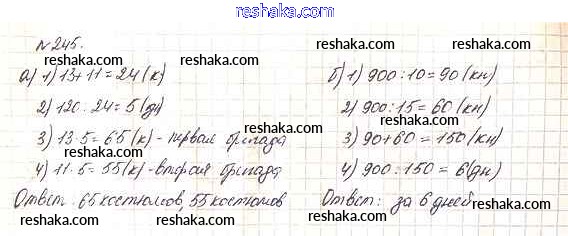 reshaka.com
№245.
reshaka.com
reshaka.com
а) 1) 13+11=24 (к)
2) 120:24=5 (дн)
3) 13·5=65 (к) - первая бригада
4) 11·5=55 (к) - вторая бригада
Ответ: 65 костюмов, 55 костюмов
б) 1) 900:10=90 (кн)
2) 900:15=60 (кн)
3) 90+60=150 (кн)
4) 900:150=6 (дн)
Ответ: за 6 дней.
reshaka.com
reshaka.com
reshaka.com
reshaka.com
reshaka.com
reshaka.com
reshaka.com
reshaka.com
reshaka.com